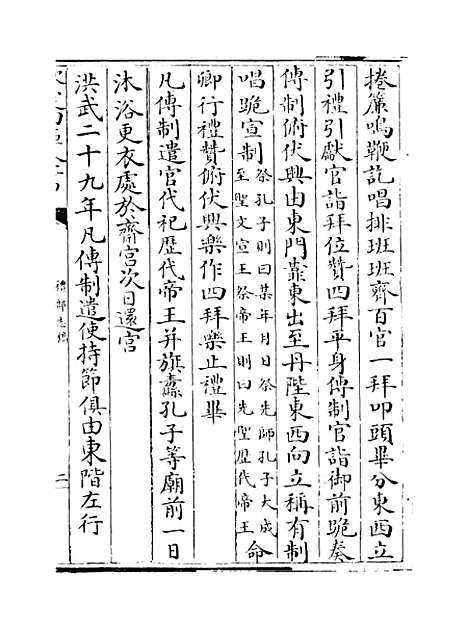 捲簾鳴鞭訖唱排班班齊百官一拜叩頭畢分東西立
引禮引獻官詣拜位贊四拜平身傳制官詣御前跪奏
傳制俯伏興由東門靠東出至丹陛東西向立稱有制
唱跪宣制祭孔子則曰某年月日祭先師孔子大成
至聖文宣王祭帝王則曰先聖歷代帝王命
卿行禮贊俯伏興樂作四拜樂止禮畢
凡傳制遣官代祀歷代帝王并旗纛孔子等廟前一日
沐浴更衣處於齋宮次日還宮
洪武二十九年凡傳制遣使持節俱由東階左行
禮部志稿
二